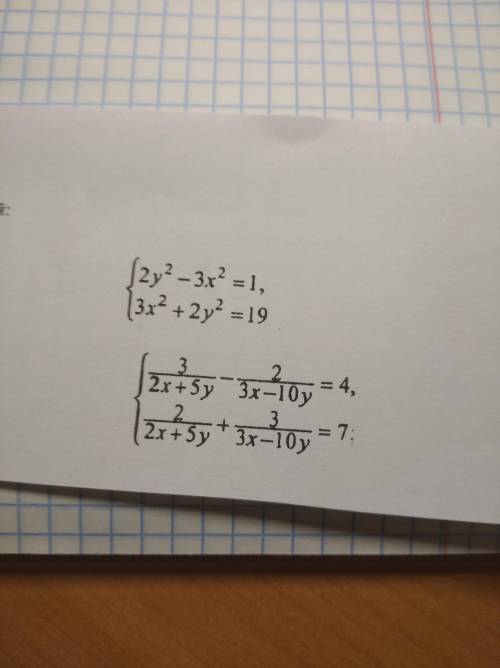 2y² − 3x² = 1,
3x² + 2y² = 19
3/(2x+5y) − 2/(3x−10y) = 4,
2/(2x+5y) + 3/(3x−10y) = 7